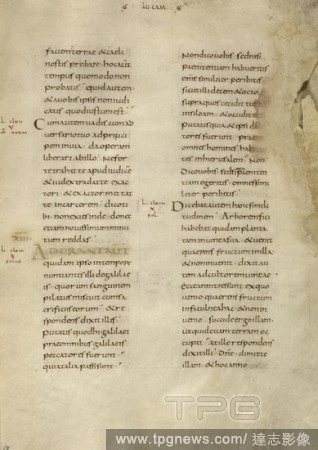 LUCAM
faciem terrae & caeli
nostis probare hoc aut
tempus quomodo non
probatis quid autem
& a uobis ipsis non iudi
catis quod iustum est
Cum autem uadis cum ad
uersario tuo ad princi
pem in uia da operam
liberari ab illo Ne for
te trahat te apud iudice
& iudex tradat te exac
tori & exactor mittat
te in carcerem dico ti
bi non exies inde donec
etiam nouissimum minu
tum reddas
XIII
ADERANT AUT
quidam ipso in tempore
nuntiantes illi de galilaeis
quorum sanguinem
pilatus miscuit cum sa
crificiis eorum & re
spondens dixit illis
Putatis quod hi galilaei
prae omnibus galilaeis
peccatores fuerunt
quia talia passi sunt
Non dico uobis sed nisi
paenitentiam habueritis
omnes similiter peribitis
sicut illi decem & octo
supra quos cecidit turris
in siloam & occidit eos
putatis quia & ipsi debi
tores fuerunt praeter
omnes homines habitan
tes in hierusalem Non
dico uobis sed si paeniten
tiam egeritis omnes simi
liter peribitis
Dicebat autem hanc simili
tudinem Arborem fici
habebat quidam planta
tam in uinea sua & uenit
quaerens fructum in illa
& non inuenit dixit au
tem ad cultorem uineae
Ecce anni tres sunt ex quo
uenio quaerens fructum
in ficulnea hac & non in
uenio succide ergo illam
ut quid etiam terram oc
cupat at ille respondens
dixit illi Dne dimitte
illam & hoc anno
TPG
www.tpgnews.com / 達志影像